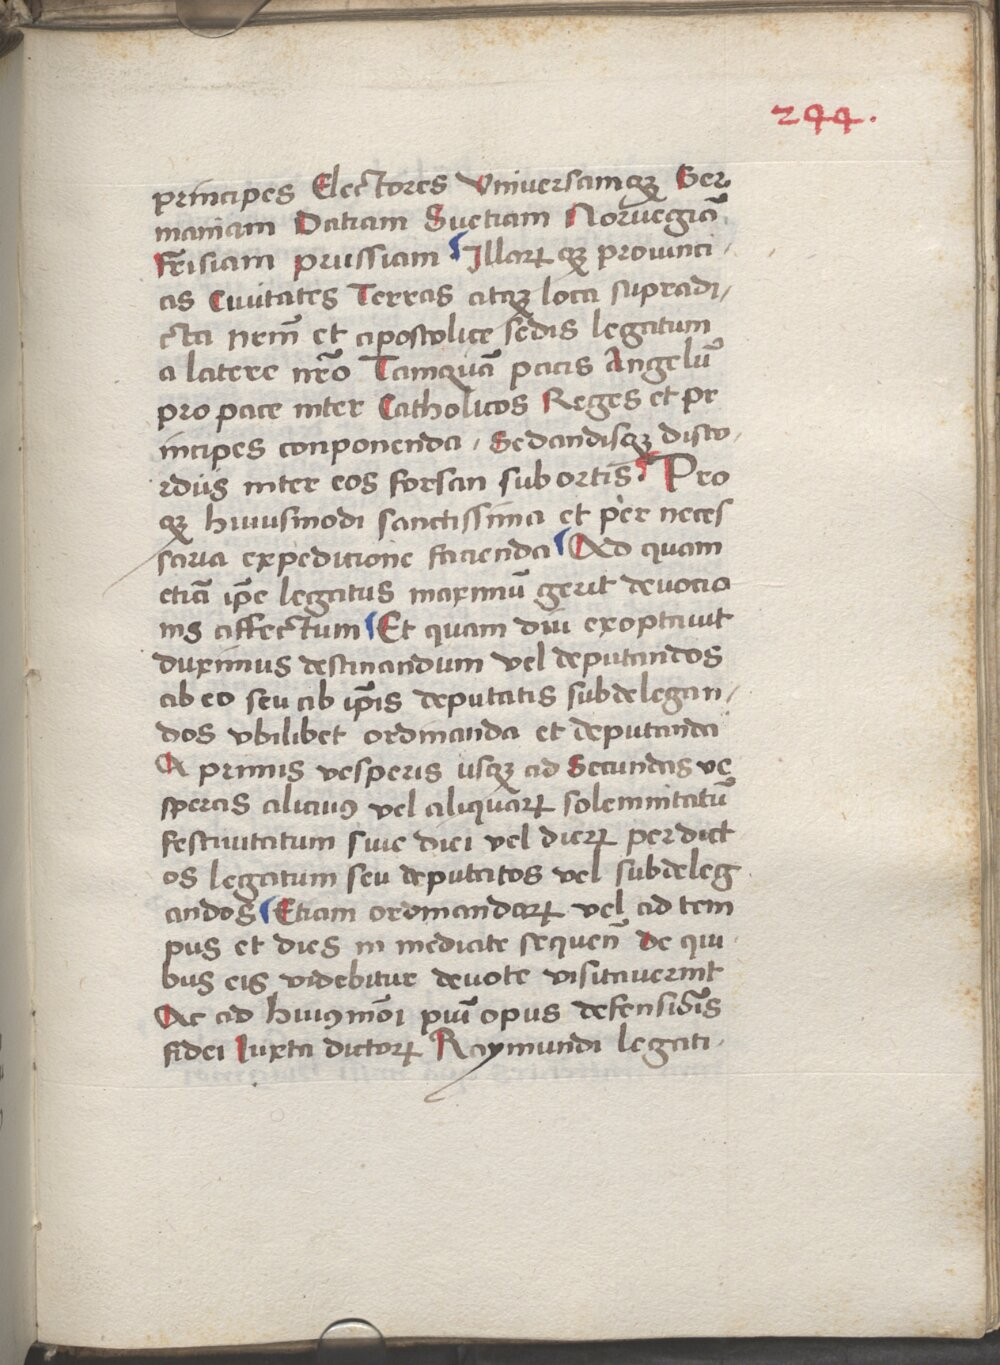 244.
principes Electores Vniuersamqꝫ Ger
maniam Datiam Suetiam Noruegiā
Frisiam prussiam Illarꝝ qꝫ prouinci
as Ciuitates Terras atqꝫ loca supradi/
cta nrm̄ et apostolice sedis legatum
a latere nr̄o Tamquā pacis Angelū
pro pace inter Catholicos Reges et pr
incipes conponenda / Sedandisqꝫ disco/
rdiis inter eos forsan subortis Pro
qꝫ huiusmodi sanctissima et per neces
saria expeditione facienda Ad quam
etiā ip̄e legatus maximū gerit deuocio
nis affectum Et quam diu exoptauit
duximus destinandum vel deputandos
ab eo seu ab ip̄is deputatis subdelegan/
dos vbilibet ordinanda et deputanda
A primis vesperis usqꝫ ad Secundas ve
speras alicuiꝰ vel aliquarꝝ solemnitatū
festiuitatum siue diei vel dierꝝ per dict
os legatum seu deputatos vel subdeleg
andos Etiam ordinandarꝝ vel ad tem
pus et dies in mediate sequen̄ de qui
bus eis videbitur deuote visitauerint
Ac ad huiꝰmōi piū opus defensiōis
fidei Iuxta dictorꝝ Raymundi legati